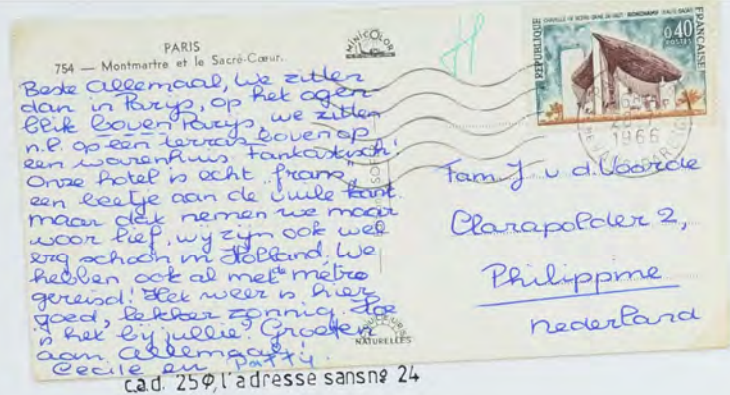 PARIS
754 — Montmartre et le Sacré-Cœur.
MINICOLOR
Beste allemaal, We zitten
dan in Parys, op het ogen-
blik boven Parys, we zitten
n.l. op een terras bovenop
een warenhuis fantastisch!
Onze hotel is echt frans,
een beetje aan de vuile kant.
maar dat nemen we maar
voor lief, wij zijn ook wel
erg schoon in Holland. We
hebben ook al met de métro
gereisd! Het weer is hier
goed, lekker zonnig. Hoe
is het bij jullie? Groeten
aan allemaal!
Cecile en Patty.
COULEURS
NATURELLES
REPUBLIQUE FRANÇAISE
CHAPELLE DE NOTRE-DAME DU HAUT - RONCHAMP (HAUTE-SAÔNE)
0,40
POSTES
1966
Fam J v d. Voorde
Clarapolder 2,
Philippine
nederland
c.a.d. 25Φ, l'adresse sans nº 24